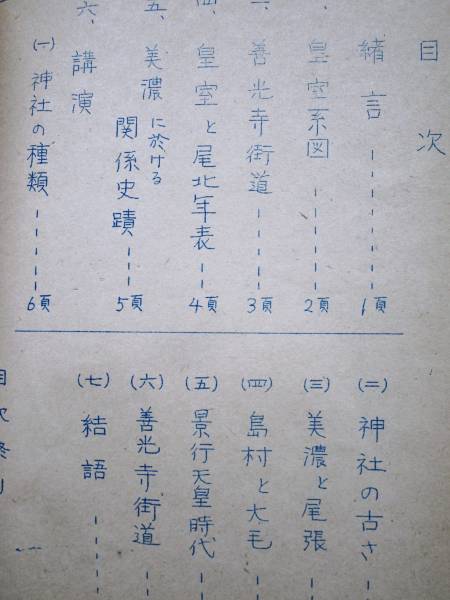 目次
、緒言 1頁
、皇室系図 2頁
、善光寺街道 3頁
四、皇室と尾北年表 4頁
五、美濃に於ける
関係史蹟 5頁
六、講演
(一)神社の種類 6頁
(二)神社の古さ
(三)美濃と尾張
(四)島村と大毛
(五)景行天皇時代
(六)善光寺街道
(七)結語
目次終り